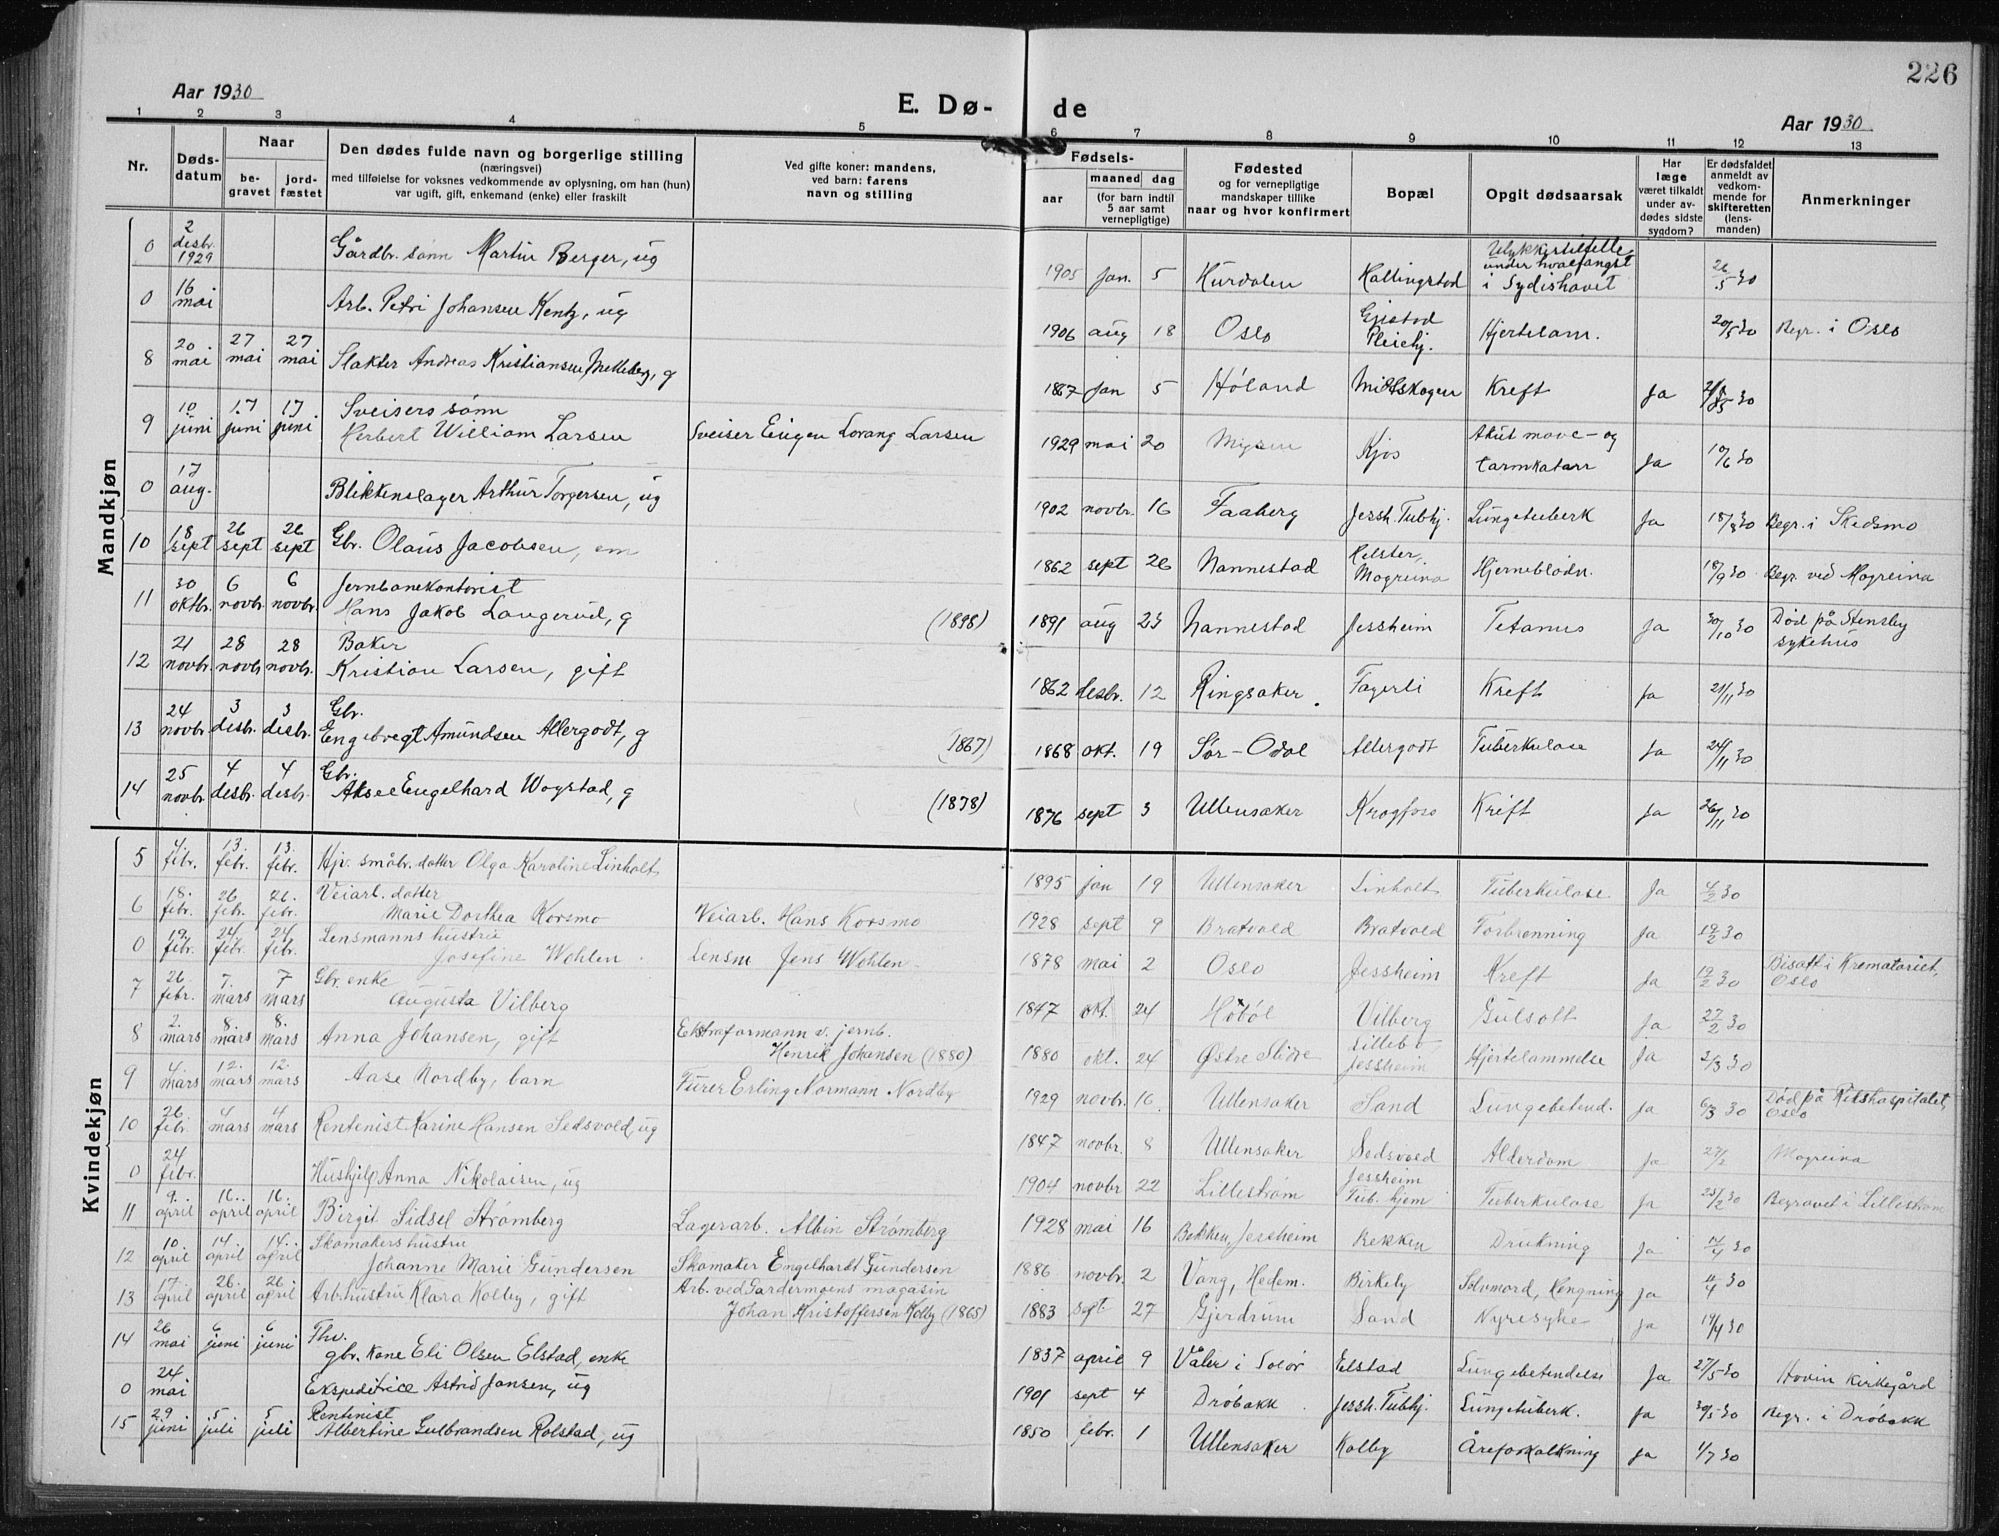 226
Aar 1930
E. Dø- de
Aar 1930
1 2 3 4 5 6 7 8 9 10 11 12 13
Nr.
Døds-
datum
Naar
be-
gravet
jord-
fæstet
Den dødes fulde navn og borgerlige stilling
(næringsvei)
med tilføielse for voksnes vedkommende av oplysning, om han (hun)
var ugift, gift, enkemand (enke) eller fraskilt
Ved gifte koner: mandens,
ved barn: farens
navn og stilling
Fødsels-
aar
maaned dag
(for barn indtil
5 aar samt
vernepligtige)
Fødested
og for vernepligtige
mandskaper tillike
naar og hvor konfirmert
Bopæl
Opgit dødsaarsak
Har
læge
været tilkaldt
under av-
dødes sidste
sygdom?
Er dødsfaldet
anmeldt av
vedkom-
mende for
skifteretten
(lens-
manden)
Anmerkninger
Mandkjøn
0 2 desbr. 1929 Gårdbr. sønn Martin Berger, ug 1905 jan. 5 Hurdalen Hallingstad Ulykkestilfelle under hvalfangst i Sydishavet 26/5 30
0 16 mai Arb. Petri Johansen Kentz, ug 1906 aug 18 Oslo Gjestad Pleiehj. Hjertelam. 20/5 30 Begr. i Oslo
8 20. mai 27 mai 27 mai Slakter Andreas Kristiansen Melleberg, g 1867 jan 5 Høland Midtskogen Kreft Ja 30
9 10 juni 17 juni 17 juni Sveisers sønn Herbert William Larsen Sveiser Eugen Lorang Larsen 1929 mai 20 Mysen Kjos Akut mave- og tarmkatarr Ja 10/6 30
0 17 aug. Blikkenslager Arthur Torgersen, ug 1902 novbr. 16 Faaberg Jessh. Tubhj. Lungetuberk Ja 18/8 30 Begr. i Skedsmo
10 18 sept 26 sept 26 sept Gbr. Olaus Jacobsen, em 1862 sept 26 Nannestad Helster, Mogreina Hjerneblødn. 18/9 30 Begr. ved Mogreina
11 30 oktbr. 6 novbr. 6 novbr. Jernbanekontorist Hans Jakob Laugerud, g (1898) 1891 aug 23 Nannestad Jessheim Tetanus Ja 30/10 30 Død på Stensby sykehus
12 21 novbr. 28 novbr. 28 novbr. Baker Kristian Larsen, gift 1862 desbr. 12 Ringsaker. Fagerli Kreft Ja 21/11 30
13 24 novbr. 3 desbr. 3 desbr. Gbr. Engebregt Amundsen Allergodt, g (1867) 1868 okt. 19 Sør-Odal Allergodt Tuberkulose Ja 24/11 30
14 25 novbr. 4 desbr. 4 desbr. Gbr. Aksel Engelhard Wogstad, g (1878) 1876 sept 3 Ullensaker Krogfoss Kreft Ja 26/11 30
Kvindekjøn
5 4. febr. 13. febr. 13. febr. Hjv. småbr. datter Olga Karoline Linholt 1895 jan 19 Ullensaker Linholt Tuberkulose. Ja 4/2 30
6 18. febr. 26 febr. 26. febr. Veiarb. datter Marie Dorthea Korsmo Veiarb. Hans Korsmo 1928 sept 9 Bratvold Bratvold Forbrenning Ja 19/2 30
0 19. febr. 24 febr. 24 febr. Lensmanns hustru Josefine Wohlen. Lensm Jens Wohlen. 1878 mai 2 Oslo Jessheim Kreft Ja 19/2 30 Bisatt i Krematoriet, Oslo
7 26 febr. 7. mars 7 mars Gbr. enke Augusta Vilberg 1847 okt. 24 Hobøl Vilberg Gulsott Ja 27/2 30
8 2. mars 8. mars 8. mars Anna Johansen, gift Ekstraformann v. jernb. Henrik Johansen (1880) 1880 okt. 24 Østre Slidre Lillebo, Jessheim Hjertelammelse Ja 2/3 30
9 4. mars 12. mars 12. mars Aase Nordby, barn Furer Erling Normann Nordby 1929 novbr. 16. Ullensaker Sand Lungebetend. Ja 6/3 30 Død på Rikshospitalet, Oslo
10 26 febr. 4 mars 4 mars Rentenist Karine Hansen Sedsvold, ug 1847 novbr. 8 Ullensaker Sedsvold Alderdom Ja 27/2 Mogreina
0 24 febr. Hushjelp Anna Nikolaisen, ug 1904 novbr 22 Lillestrøm Jessheim Tub. hjem Tuberkulose Ja 25/2 30 Begravet i Lillestrøm
11 9. april 16. april 16. april Birgit Sidsel Strømberg Lagerarb. Albin Strømberg 1928 mai 16 Bekken, Jessheim Bekken Drukning Ja 30
12 10 april 14 april 14. april Skomakers hustru Johanne Marie Gundersen Skomaker Engelhardt Gundersen 1886 novbr. 2 Vang, Hedem. Birkely Selvmord, Hengning Ja 30
13 17 april 26. april 26 april Arb. hustru Klara Kolby, gift Arb. ved Gardermoens magasin Johan Kristoffersen Kolby (1865) 1883 sept 27 Gjerdrum Sand Nyresyke Ja 19/4 30
14 26 mai 6 juni 6 juni Fhv. gbr. kone Eli Olsen Elstad, enke 1837 april 9 Våler i Solør Elstad Lungebetendelse Ja 27/5 30 Hovin kirkegård
0 24 mai Ekspeditrice Astrid Jansen, ug 1901 sept 4 Drøbakk Jessh. Tubhj. Lungetuberk. Ja 30/5 30 Begr. i Drøbakk
15 29 juni 5 juli 5 juli Rentenist Albertine Gulbrandsen Rolstad, ug 1850 febr. 1 Ullensaker Kolby Åreforkalkning Ja 1/7 30